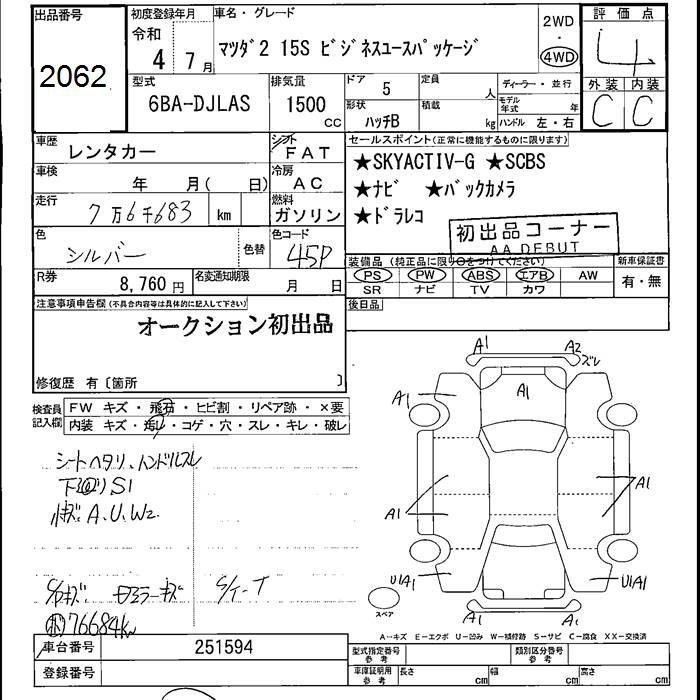 出品番号
2062
初度登録年月
令和
4 7月
車名・グレード
マツダ2 15S ビジネスユースパッケージ
2WD
・
4WD
評価点
4
外装 内装
C C
型式
6BA-DJLAS
排気量
1500
CC
ドア 5
定員 人
形状
ハッチB
積載 kg
ディーラー・並行
モデル年式 年
ハンドル 左・右
車歴
レンタカー
シフト
FAT
車検
年 月( 日)
冷房
AC
走行
7万6千683 km
燃料
ガソリン
色
シルバー
色替
色コード
45P
R券
8,760円
名変通知期限
月 日
セールスポイント(正常に機能するものに限ります)
★SKYACTIV-G ★SCBS
★ナビ ★バックカメラ
★ドラレコ
初出品コーナー
AA DEBUT
装備品(純正品に限り○をつけてください)
新車保証書
PS PW ABS エアB AW
SR ナビ TV カワ
有・無
後日品
注意事項申告欄(不具合内容等は具体的に記入して下さい)
オークション初出品
修復歴 有〔箇所 〕
検査員
記入欄
FW キズ・飛石・ヒビ割・リペア跡・×要
内装 キズ・汚レ・コゲ・穴・スレ・キレ・破レ
シートヘタリ、ハンドルスレ
下回りS1
小キズ A、U、W2
Sノイ-T
76684km
A1 A2
ズレ
A1
A1
A1
A1
UA1
UA1
A1
A1
スペア
A…キズ E…エクボ U…凹み W…補修跡 S…サビ C…腐食 XX…交換済
車台番号
251594
登録番号
型式指定番号
参考
類別区分番号
参考
車庫証明用
参考
長さ cm
幅 cm
高さ cm